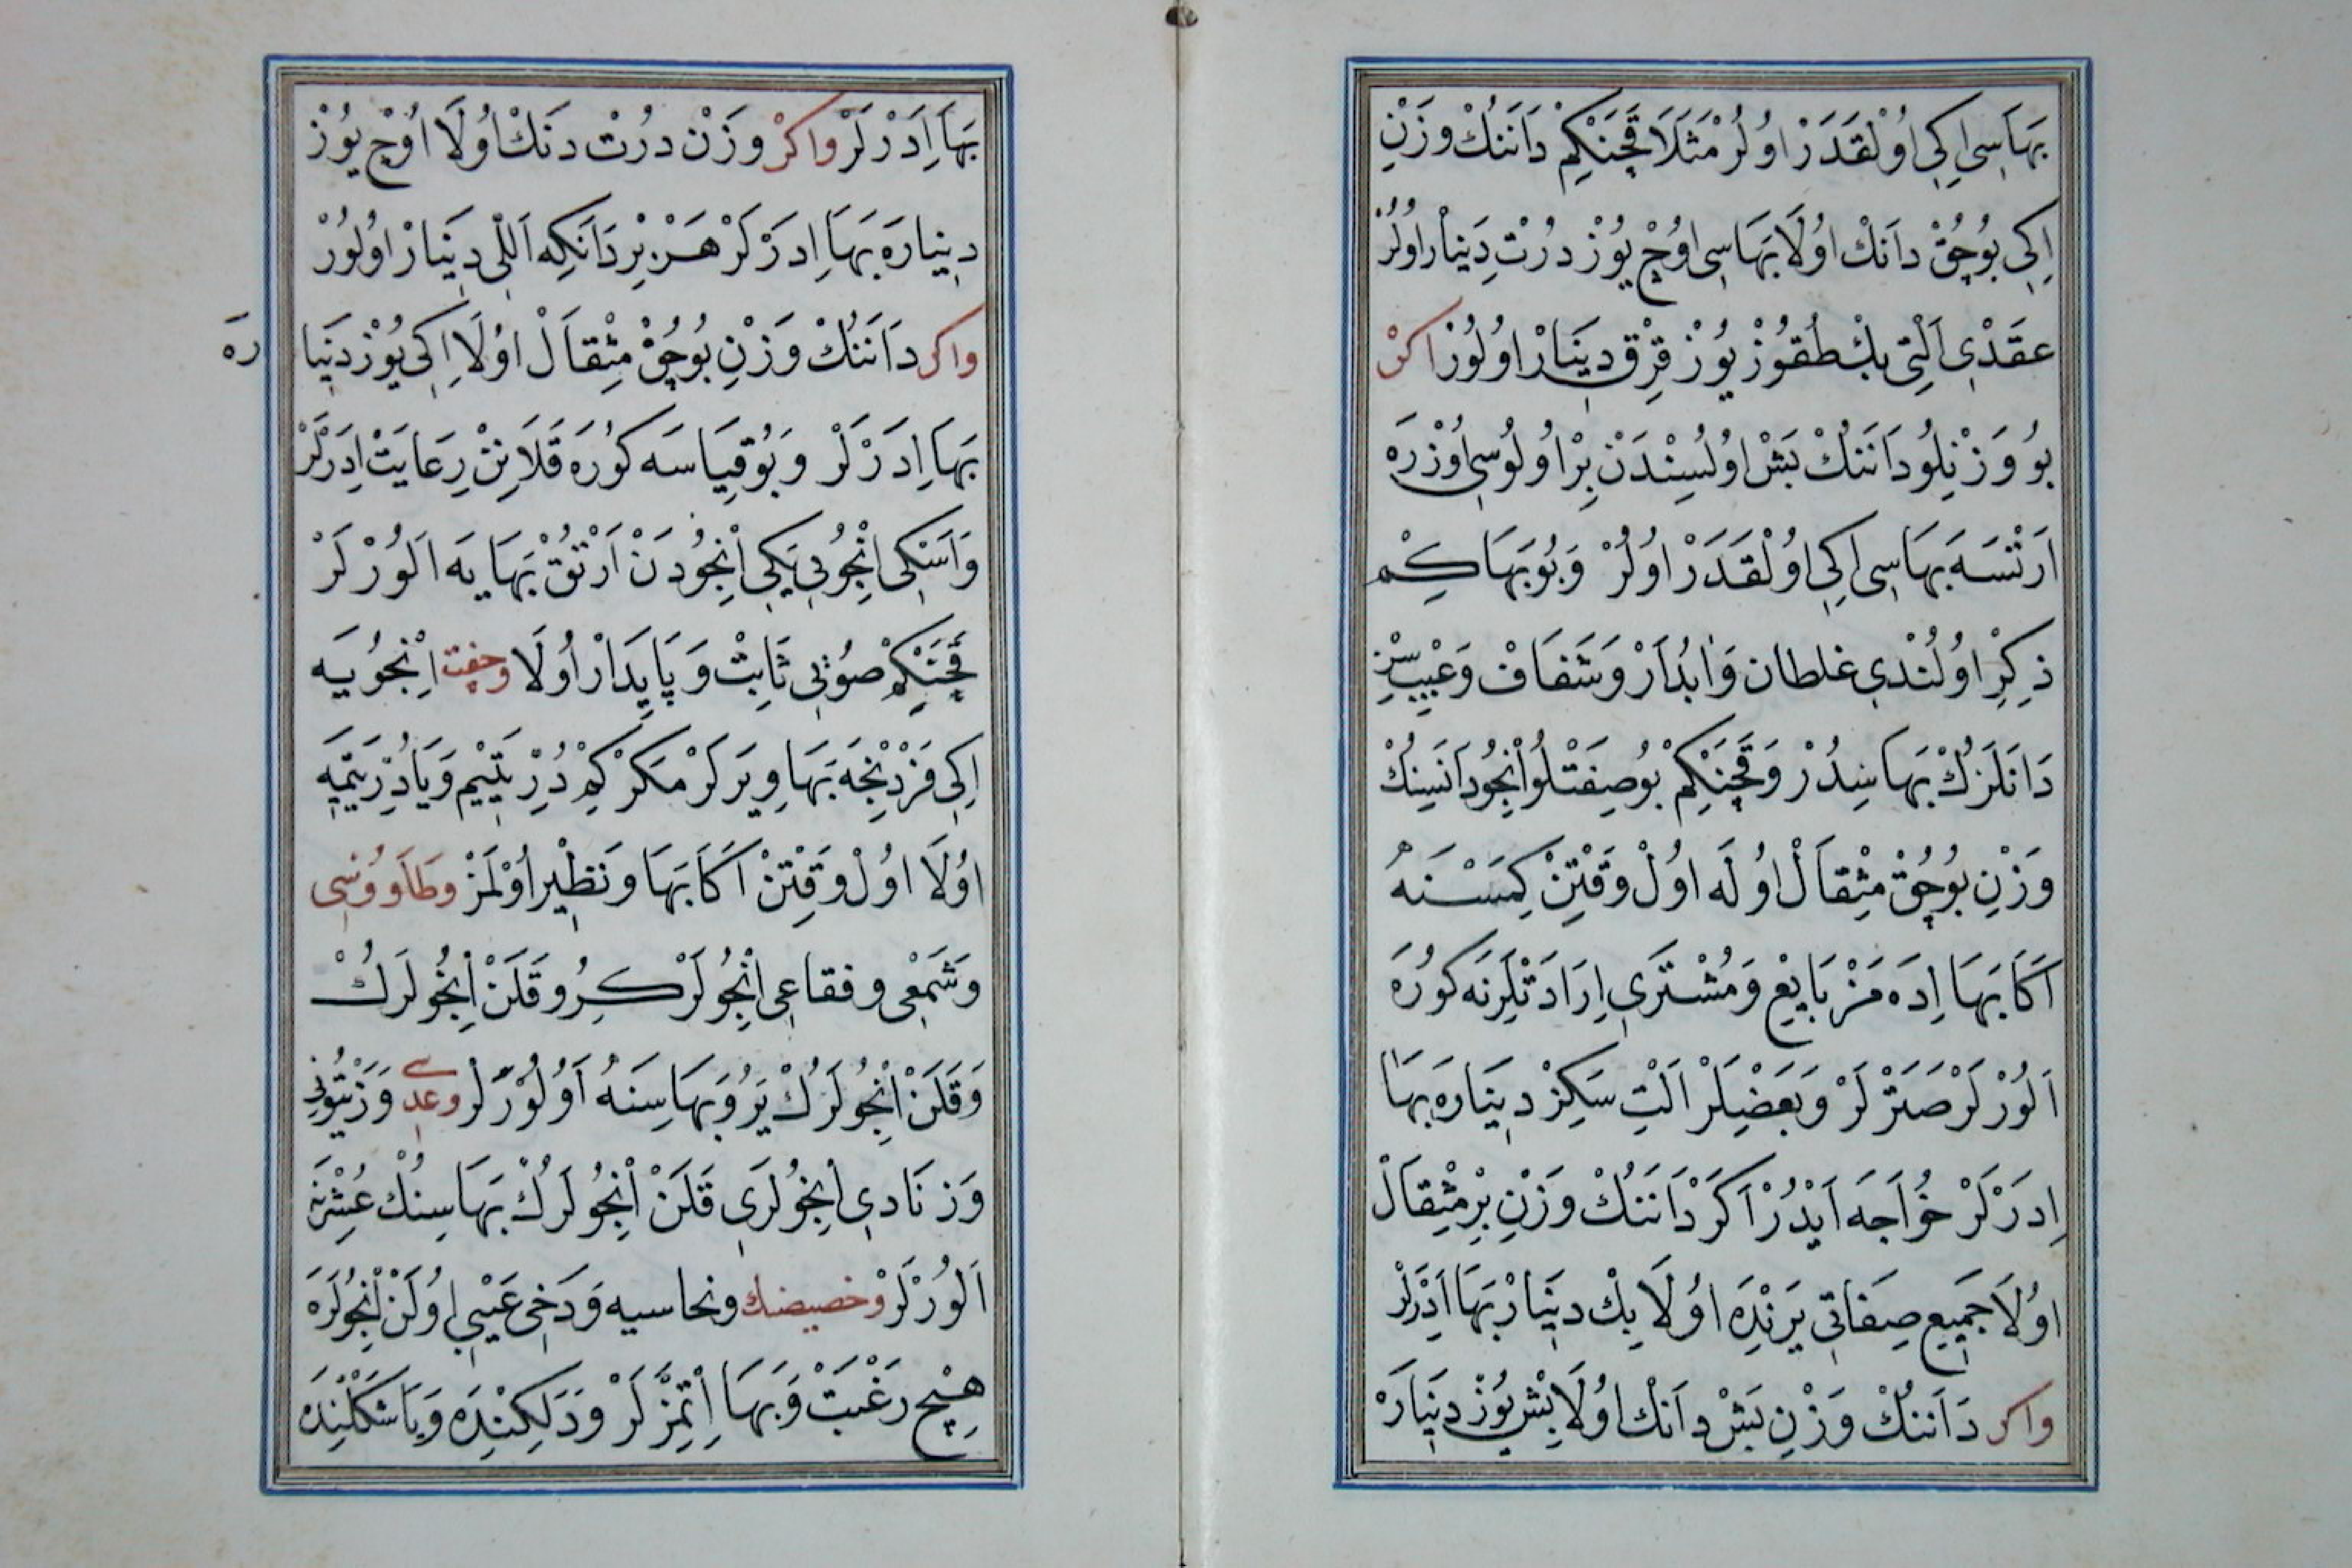 بَهَاسِی اِكِی اُولْقَدَرْ اُولُرْ مَثَلَا قَچَنْكِمْ دَانَنُكْ وَزْنِ
اِكِی بُوچُقْ دَانْكْ اُولَا بَهَاسِی اُوچْ يُوزْ دُرْتْ دِينَارْ اُولُرْ
عِقْدِی اَلْتِی بِكْ طُقُوزْ يُوزْ قِرْقْ دِينَارْ اُولُورْ اكرْ
بُو وَزْنِلُو دَانَنُكْ بَشْ اُولُسِنْدَنْ بِرْ اُولُوسِی اُوزْرَه
اَرْتْسَه بَهَاسِی اِكِی اُولْقَدَرْ اُولُرْ وَبُو بَهَا كِمْ
ذِكِرْ اُولُنْدِی غلطان وَابْدَارْ وَشَفَافْ وَعَيْبسِزْ
دَانَلَرُكْ بَهَاسِدُرْ وَقَچَنْكِمْ بُو صِفَتْلُو اِنْجُو دَانَسِنِكْ
وَزْنِ بُوچُقْ مِثْقَالْ اُولَه اُولْ وَقْتِنْ كِمَسْنَهْ
اَكَا بَهَا اِدَه مَزْ بَايِعْ وَمُشْتَرِی اِرَادَتْلَرِنَه كُورَه
اَلُورْلَرْ صَتَرْلَرْ وَبَعْضِلَرْ اَلْتِ سَكِزْ دِينَارَه بَهَا
اِدَرْلَرْ خُوَاجَه اَيْدُرْ اَكَرْ دَانَنُكْ وَزْنِ بِرْ مِثْقَالْ
اُولَا جَمِيعِ صِفَاتِی يَرِنْدَه اُولَا بِكْ دِينَارْ بَهَا اِدَرْلَرْ
واكر دَانَنُكْ وَزْنِ بَشْ دَانْكْ اُولَا بِشْ يُوزْ دِينَارَه
بَهَا اِدَرْلَرْ واكرْ وَزْن دُرْتْ دَنَكْ اُولَا اُوچْ يُوزْ
دِينَارَه بَهَا اِدَرْلَرْ هَرْ بِرْ دَانَكِه اَللِی دِينَارْ اُولُورْ
واكر دَانَنُكْ وَزْنِ بُوچُقْ مِثْقَالْ اُولَا اِكِی يُوزْ دِينَا رَه
بَهَا اِدَرْلَرْ وَبُو قِيَاسَه كُورَه قَلَانِنْ رِعَايَتْ اِدَرْلَرْ
وَاَسْكِی اِنْجُويِی يَكِی اِنْجُودَنْ اَرْتُقْ بَهَايَه اَلُورْلَرْ
قَچَنْكِمْ صُويِی ثَابِتْ وَپَايِدَارْ اُولَا وجفت اِنْجُويَه
اِكِی فَرْدِنْجَه بَهَا وِيرَرْلَرْ مَكَرْ كِمْ دُرِّ يَتِيمْ وَيَا دُرِّ يَتِيمَه
اُولَا اُولْ وَقْتِنْ اَكَا بَهَا وَنَظِيرْ اُولْمَزْ وطَاَووُسِی
وَشَمْعِی وفقاعِی اِنْجُولَرْ كِرُو قَلَنْ اِنْجُولَرُكْ
وَقَلَنْ اِنْجُولَرُكْ يَرُو بَهَاسِنَهْ اَلُورْلَرْ وعدسی وَزَيْتُونِی
وَزنَادِی اِنْجُولَرِی قَلَنْ اِنْجُولَرُكْ بَهَاسِنُكْ عُشْرِنَه
اَلُورْلَرْ وخصيصنك ونحاسيه وَدَخِی عَيْبِی اُولَنْ اِنْجُولَرَه
هِيچْ رَغْبَتْ وَبَهَا اِتْمَزْلَرْ وَدَلِكِنْدَه وَيَا شَكْلِنْدَه